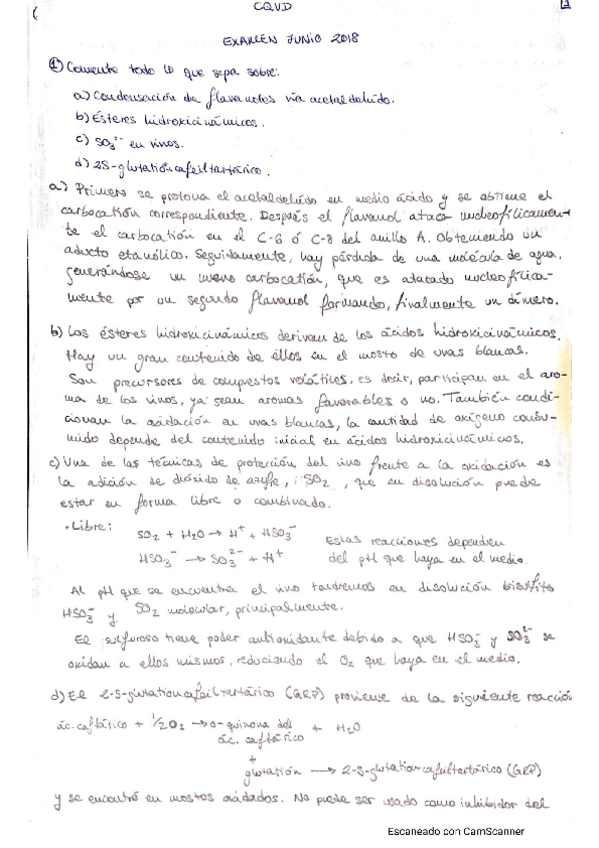 CQVD
1
EXAMEN JUNIO 2018
① Comente todo lo que sepa sobre:
a) Condensación de flavanoles vía acetaldehído.
b) Ésteres hidroxicinámicos.
c) SO₃²⁻ en vinos.
d) 2S-glutatióncafeiltartárico.
a) Primero se protona el acetaldehído en medio ácido y se obtiene el
carbocatión correspondiente. Después el flavanol ataca nucleofílicamen-
te el carbocatión en el C-6 ó C-8 del anillo A. Obteniendo un
aducto etanólico. Seguidamente, hay pérdida de una molécula de agua,
generándose un nuevo carbocatión, que es atacado nucleofílica-
mente por un segundo flavanol formando, finalmente un dímero.
b) Los ésteres hidroxicinámicos derivan de los ácidos hidroxicinámicos.
Hay un gran contenido de ellos en el mosto de uvas blancas.
Son precursores de compuestos volátiles, es decir, participan en el aro-
ma de los vinos, ya sean aromas favorables o no. También condi-
cionan la oxidación en uvas blancas, la cantidad de oxígeno consu-
mido depende del contenido inicial en ácidos hidroxicinámicos.
c) Una de las técnicas de protección del vino frente a la oxidación es
la adición de dióxido de azufre, SO₂, que en disolución puede
estar en forma libre o combinado.
• Libre:
SO₂ + H₂O → H⁺ + HSO₃⁻
HSO₃⁻ → SO₃²⁻ + H⁺
Estas reacciones dependen
del pH que haya en el medio.
Al pH que se encuentra el vino tendremos en disolución bisulfito
HSO₃⁻ y SO₂ molecular, principalmente.
El sulfuroso tiene poder antioxidante debido a que HSO₃⁻ y SO₃²⁻ se
oxidan a ellos mismos, reduciendo el O₂ que haya en el medio.
d) El 2-S-glutatióncafeiltartárico (GRP) proviene de la siguiente reacción
ác. caftárico + ½O₂ → o-quinona del + H₂O
ác. caftárico
+
glutatión → 2-S-glutatión cafeiltartárico (GRP)
y se encontró en mostos oxidados. No puede ser usado como inhibidor del
Escaneado con CamScanner